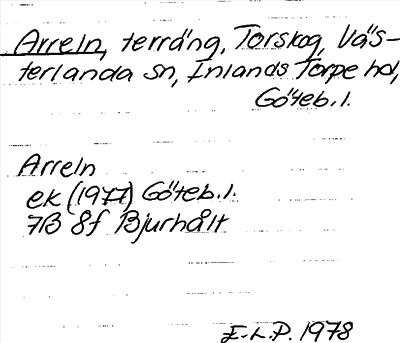 Arreln, terräng, Torskog, Väs-
terlanda sn, Inlands Torpe hd,
Göteb. l.
Arreln
ek (1977) Göteb. l.
7B 8f Bjurhålt
E.L.P. 1978